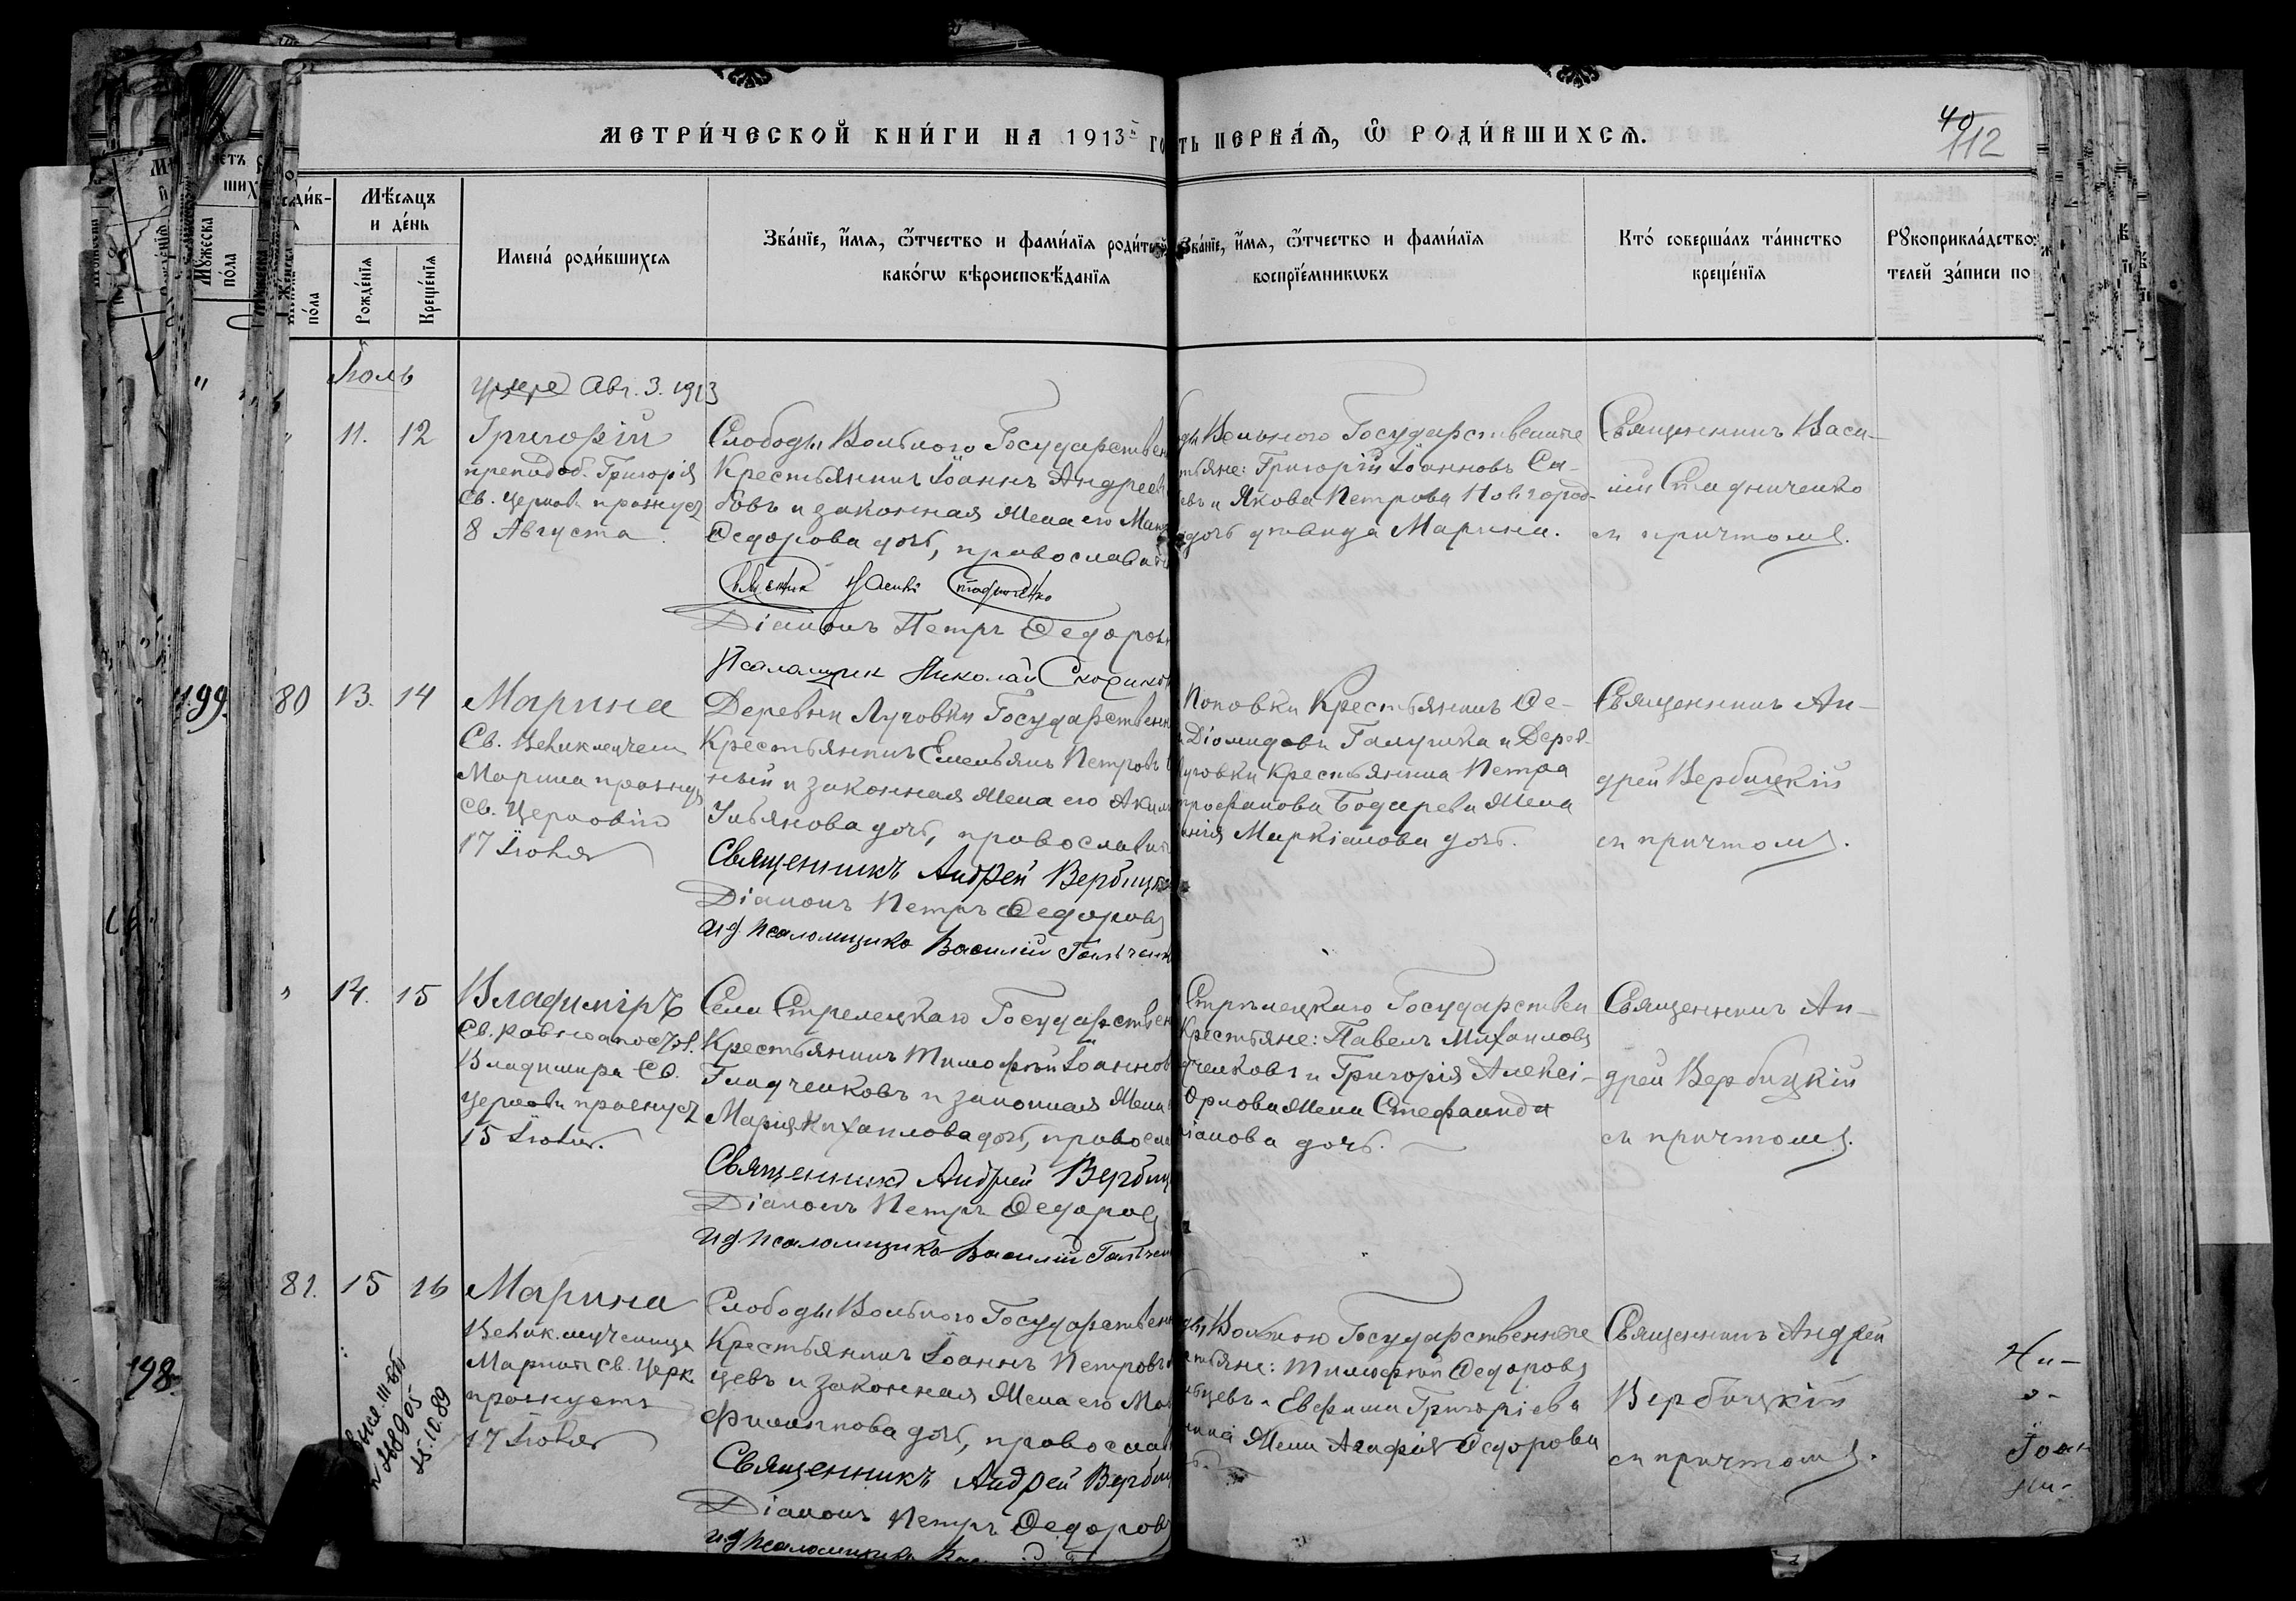 МЕТРИ́ЧЕСКОЙ КНИ́ГИ НА 1913й ГО
ТЬ ПЕРВА́Ѧ, Ѡ҃ РОДИ́ВШИХСѦ.
40
112
Мѣ́сяцъ
и де́нь
Рожде́нїя
Креще́нїя
Мꙋ́жеска
по́ла
по́ла
Имена́ роди́вшихся
Зва́нїе, и́мя, ѻ́тчество и фами́лїя роди́телей
како́гѡ вѣроисповѣ́данїя
Зва́нїе, и́мя, ѻ́тчество и фами́лїя
воспрїе́мникѡвъ
Кто́ соверша́лъ та́инство
креще́нїя
Рꙋкоприкла́дство
телей за́писи по
Іюль
умре Авг. 3. 1913
11. 12
Григорій
преподоб. Григорія
Св. Церковь празнуетъ
8 Августа
Слободы Вольного Государствен
Крестьянинъ Іоаннъ Андреев
бовъ и законная жена его
Ѳедорова дочь, православн
Діаконъ Петръ Ѳедоров
Псаломщик Николай
ды Вольного Государственные
тьяне: Григорій Іоанновъ Са-
евъ и Якова Петрова Новгород-
дочь девица Марина.
Священникъ Васи-
лій Стадниченко
съ причтомъ.
199.
80 13. 14
Марина
Св. Великмучен
Марина празнуетъ
Св. Церковію
17 Іюля
Деревни Луговки Государственн
Крестьянинъ Емельянъ Петровъ
ный и законная жена его Акил
Ульянова дочь, православн
Священникъ Андрей Вербицк
Діаконъ Петръ Ѳедоровъ
ид. псаломщика Василій
Поповки Крестьянинъ Ѳе-
Діомидовъ Галушка и Дерев-
Луговки Крестьянина Петра
Бодарева жена
Маркіанова дочь.
Священникъ Ан-
дрей Вербицкій
съ причтомъ.
14. 15
Владиміръ
Св. равноапостол.
Владимира Св.
Церковь празнуетъ
15 Іюля.
Села Стрелецкаго Государствен
Крестьянинъ Тимоѳей Іоаннов
Гладченковъ и законная жена
Марія Михаилова дочь, правосла
Священникъ Андрей Вербиц
Діаконъ Петръ Ѳедоровъ
ид. псаломщика Василій
Стрѣлецкаго Государствен
Крестьяне: Павелъ Михаиловъ
дченковъ и Григорія Алексі-
Орлова жена Стефанида
дочь.
Священникъ Ан-
дрей Вербицкій
съ причтомъ.
198.
81. 15 16
Марина
Велик.мученица
Марина св. Церк.
празнуетъ
17 Іюля
25.10.89
Слободы Вольного Государствен
Крестьянинъ Іоаннъ Петровъ
цевъ и законная жена его
Филиппова дочь, правосла
Священникъ Андрей Верби
Діаконъ Петръ Ѳедоровъ
ид псаломщика
ды Вольного Государственные
стьяне: Тимоѳей Ѳедоровъ
и Евфима Григоріева
жена Агафія Ѳедорова
Священникъ Андрей
Вербицкій
съ причтомъ.